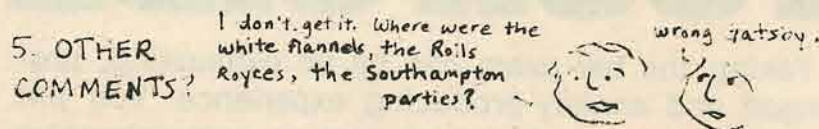 5. OTHER
COMMENTS?
I don't get it. Where were the
white flannels, the Rolls
Royces, the Southampton
parties?
wrong Gatsby.